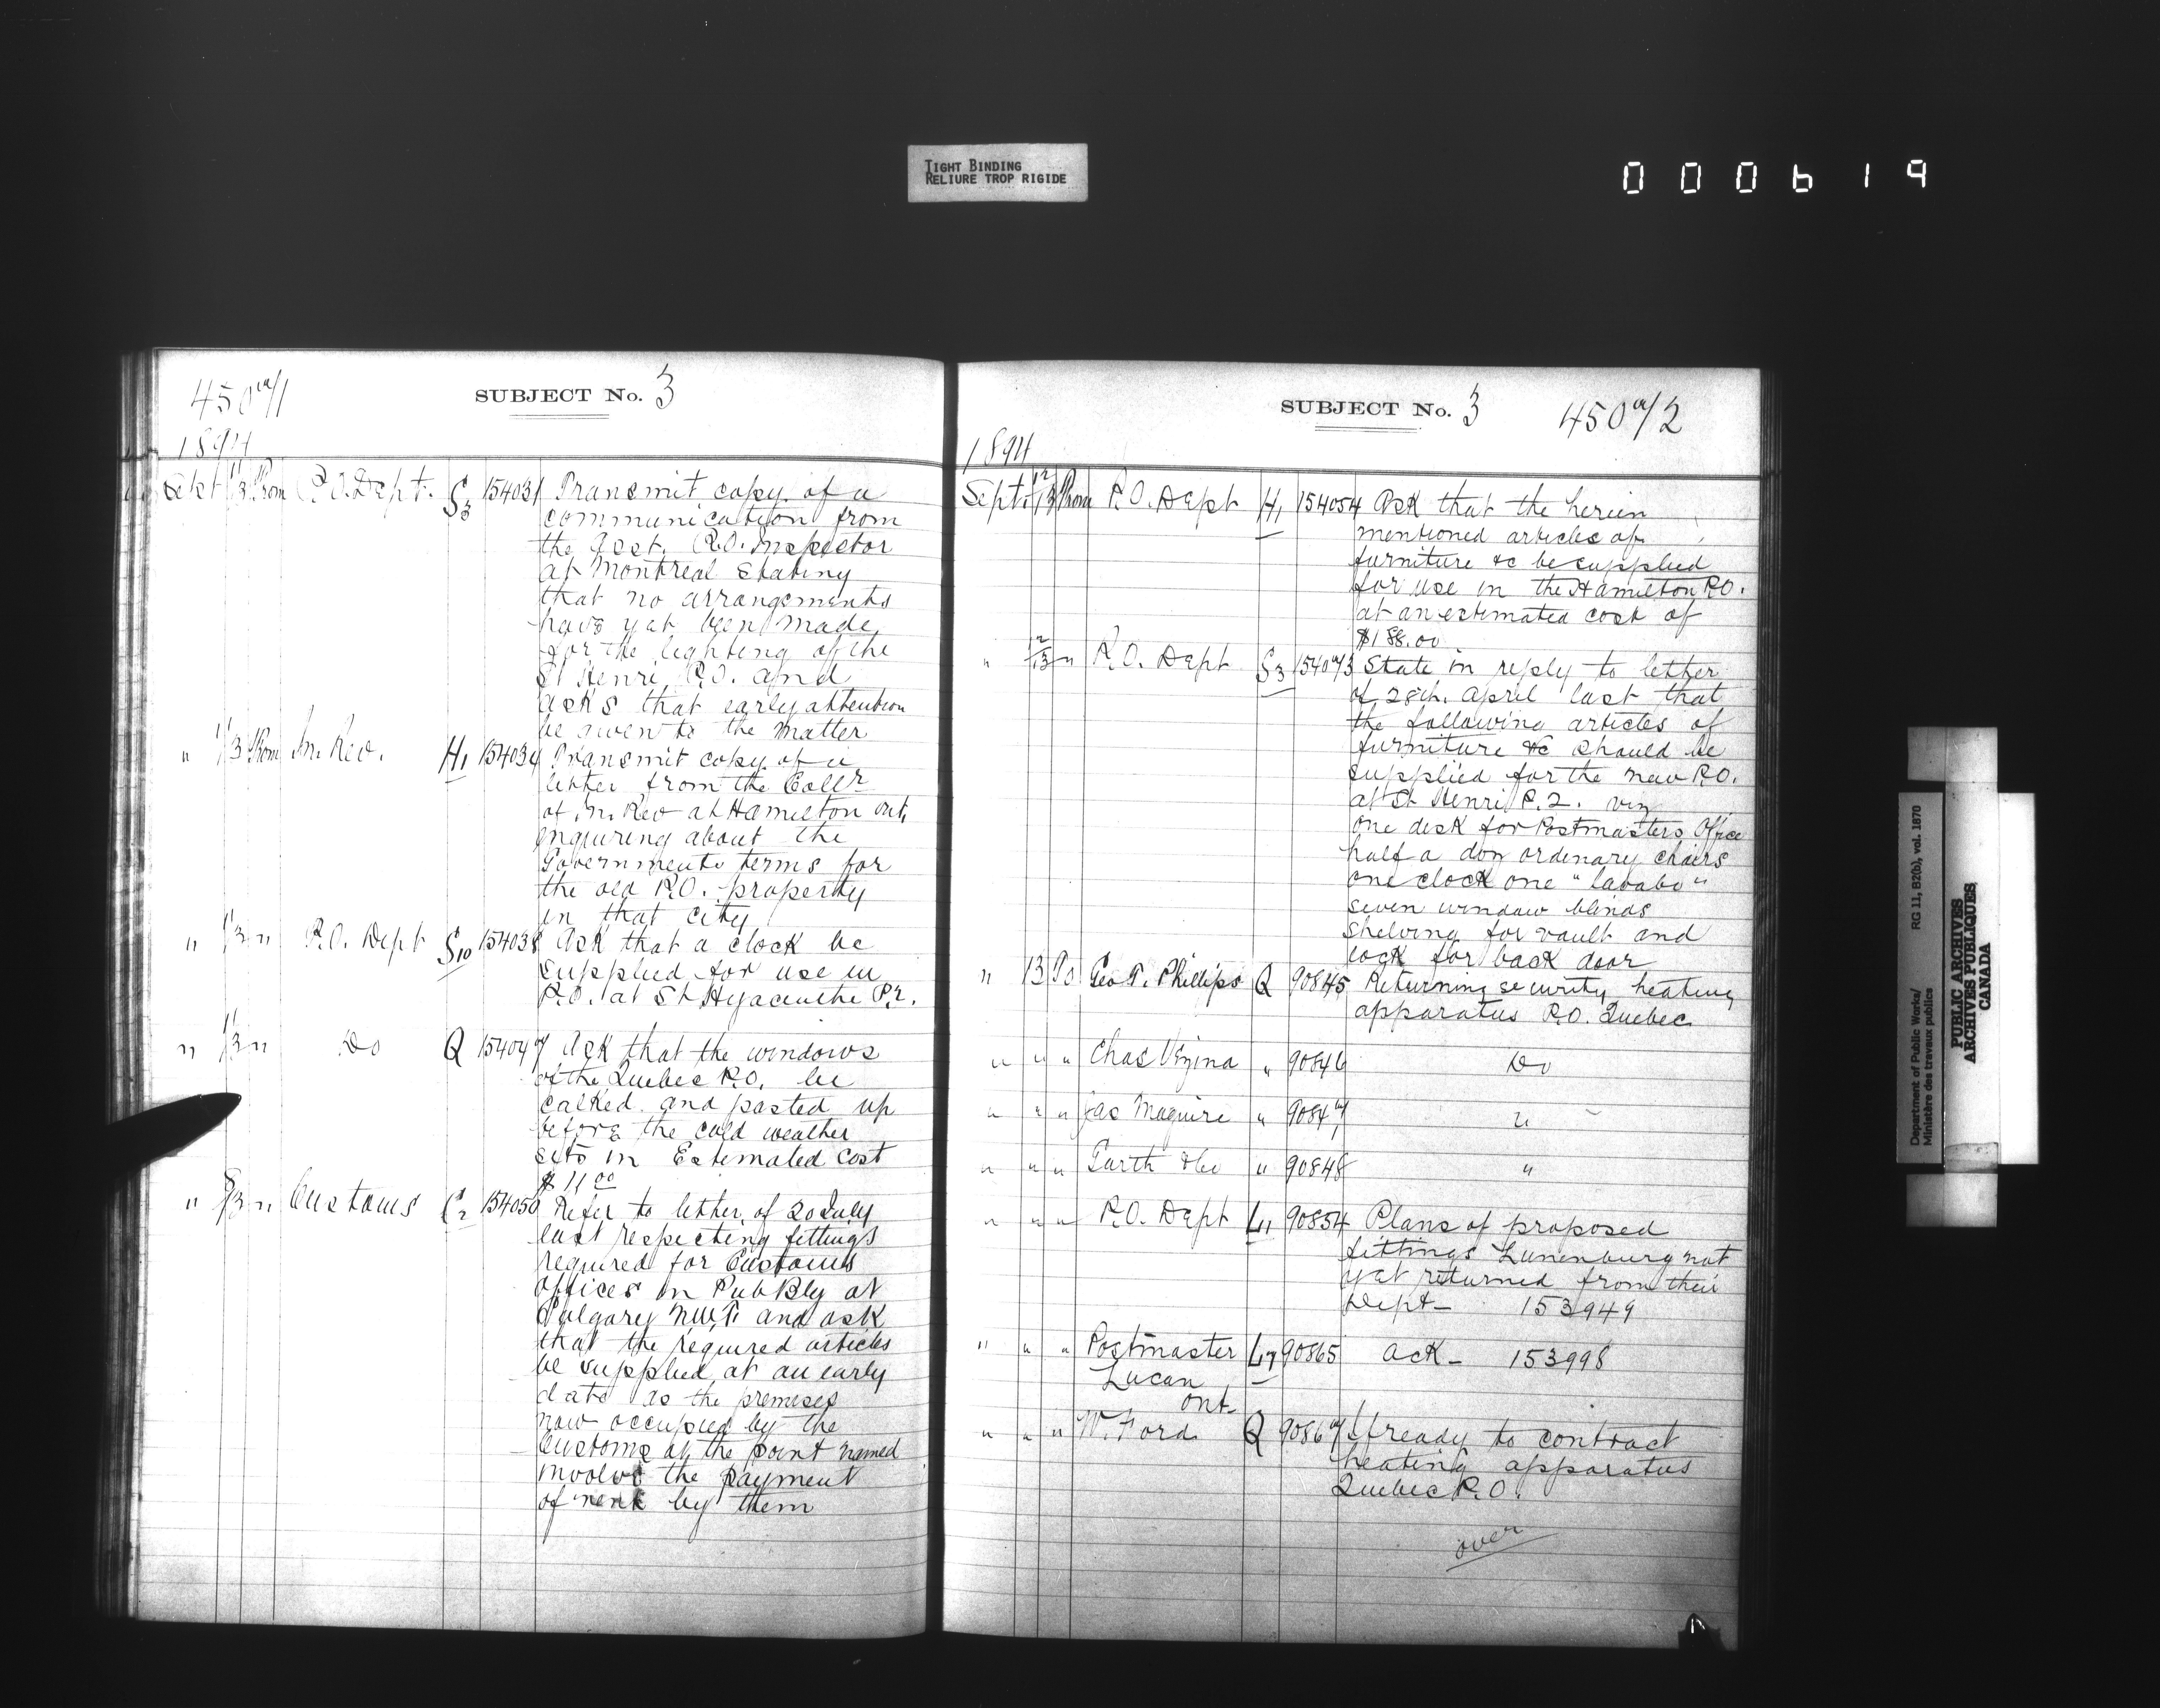 TIGHT BINDING
RELIURE TROP RIGIDE
000619
450a/1
SUBJECT No. 3
1894
Sept 11/13 From P.O. Dept. S3 154031 Transmit copy of a
communication from
the Asst. P.O. Inspector
at Montreal stating
that no arrangements
have yet been made
for the lighting of the
St Henri P.O. and
asks that early attention
be given to the matter
" 11/13 From In. Rev. H1 154034 Transmit copy of a
letter from the Collr
of In. Rev at Hamilton Ont,
enquiring about the
Governments terms for
the old P.O. property
in that city
" 11/13 " P.O. Dept S10 154038 Ask that a clock be
supplied for use in
P.O. at St Hyacinthe P.2.
" 11/13 " Do Q 154047 Ask that the windows
of the Quebec P.O. be
calked and pasted up
before the cold weather
sets in Estimated cost
$11 00
" 8/13 " Customs C2 154050 Refer to letter of 20 July
last respecting fittings
required for Customs
Offices in Pub Bly at
Calgary N.W.T. and ask
that the required articles
be supplied at an early
date as the premises
now occupied by the
Customs at the point named
involve the payment
of rent by them
SUBJECT No. 3 450a/2
1894
Sept. 12/13 From P.O. Dept H1 154054 Ask that the herein
mentioned articles of
furniture &c be supplied
for use in the Hamilton P.O.
at an estimated cost of
$188.00
" 12/13 " P.O. Dept S3 154073 State in reply to letter
of 28th. April last that
the following articles of
furniture &c should be
supplied for the new P.O.
at St Henri P.2. viz
One desk for Postmasters Office
half a doz ordenary chairs
one clock one "lavabo"
seven window blinds
shelving for vault and
lock for back door
" 13 To Geo T. Phillips Q 90845 Returning security heating
apparatus P.O. Quebec
" " " Chas Vezina " 90846 Do
" " " Jas Maguire " 90847 "
" " " Garth & Co " 90848 "
" " " P.O. Dept L11 90854 Plans of proposed
fittings Lunenburg not
yet returned from their
Dept - 153949
" " " Postmaster L7 90865 Ack - 153998
Lucan
Ont-
" " " W. Ford Q 90867 If ready to contract
heating apparatus
Quebec P.O.
over
Department of Public Works/ RG 11, B2(b), vol. 1870
Ministère des travaux publics
PUBLIC ARCHIVES
ARCHIVES PUBLIQUES
CANADA